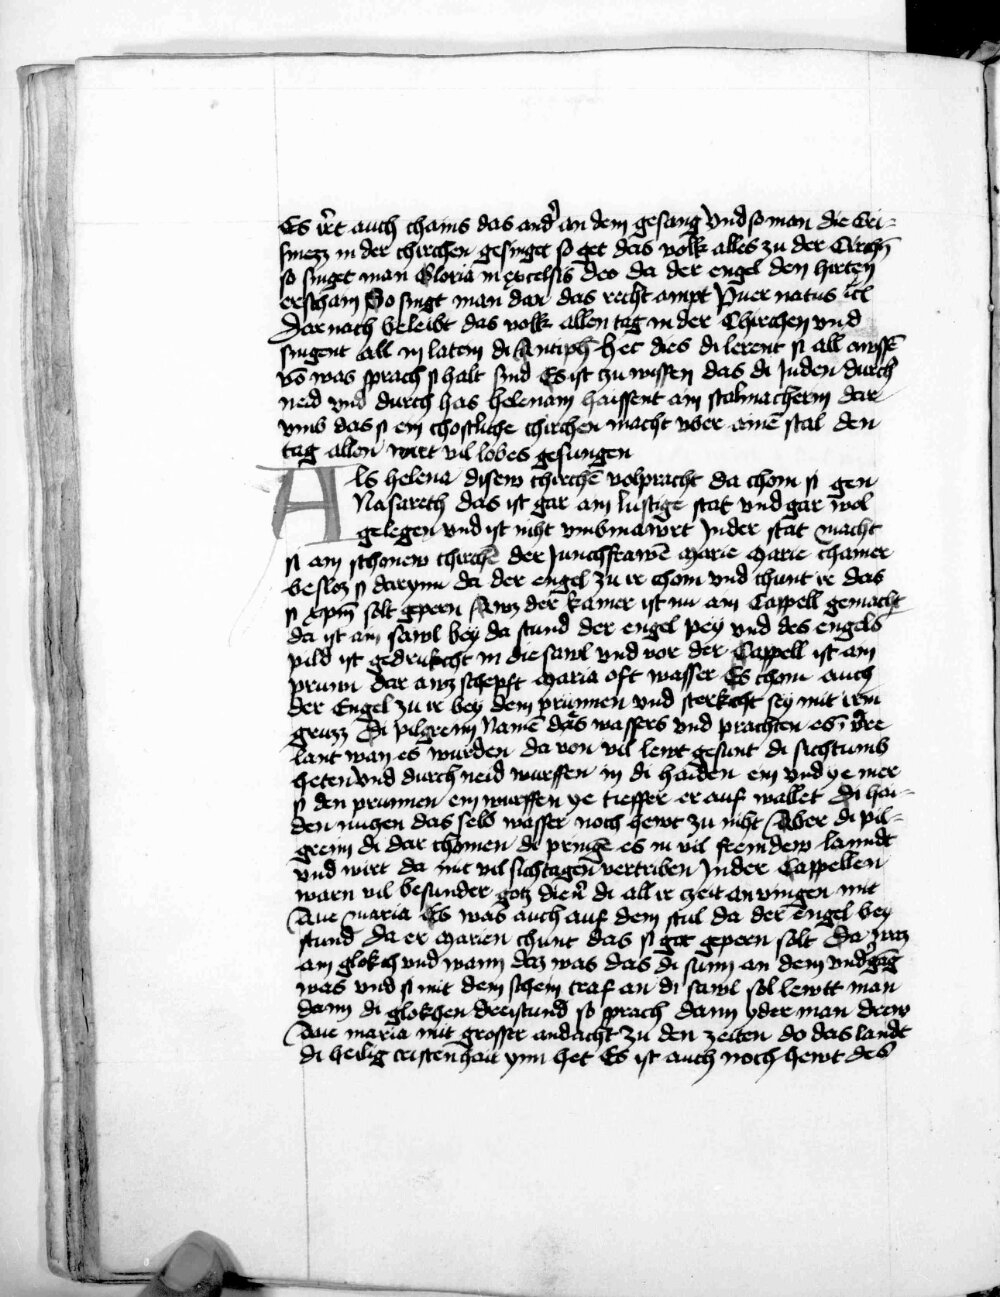 Es irt auch chains das and̕ an dem gesang Vnd so man die Cri-
smezz in der chirchen gesinget so get das volk alles zu der Chrichn̄
so singet man Gloria in excelsis deo da der engel den hirten
erscham So singt man dar das recht ampt Puer natus etc̄
Dar nach beleibt das volk allen tag in der Chirchen vnd
singent all in latein di Antiph hec dies di lerent si all awssē
vō was sprach si halt sind Es ist czu wissen das di Juden durch
neid vnd durch has helenam haissent ain stalmacherin dar
vmb das si ein chostliche chirchen macht vber ainē stal den
tag allen wirt vil lobes gesungen
Als helena disew chirchē volpracht da chom si gen
Nasareth das ist gar ain lustige stat vnd gar wol
gelegen vnd ist niht vmbmawrt Jn der stat macht
si ain schonew chirchē der Junchfrawē Marie Marie chamer
besloz si darynn da der engel zu ir chom vnd chunt ir das
si xpm̄ solt gepern Awz der kamer ist nu ain Cappell gemacht
da ist ain sawl bey da stund der engel pey vnd des engels
pild ist gedrukcht in die sawl vnd vor der Cappell ist ain
prunn dar awz schepft Maria oft wasser Es chom auch
der Engel zu ir bey dem prunnen vnd sterkcht sey mit irm
gruzz Di pilgreim Namē das wassers vnd prachten es in ir̕e
lant wan es wurden da von vil lewt gesunt di sichtumb
heten vnd durch neid wurffen in di haiden ein vnd ye mer
si den prunnen ein wurffen ye tieffer er auf wallet Di hai-
den nuczen das selb wasser noch hewt zu niht Aber di pil-
greim di dar chomen di pringē es in vil fremdew lanndt
vnd wirt da mit vil sichtagen vertriben Jn der Cappellen
warn vil besunder gotz dien̕ di all ir czeit an vingen mit
Aue Maria Es was auch auf dem stul da der engel bey
stund da er Marien chunt das si got gepern solt Da was
ain glokch vnd wann daz was das di sunn an dem vnd̕gāg
was vnd si mit dem schein traf an di sawl sol lewtt man
dann di glokhen dreistund so sprach dann yderman drew
Aue maria mit grosser andacht zu den zeiten do das landt
di heilig cristenhait ynn het Es ist auch noch hewt des